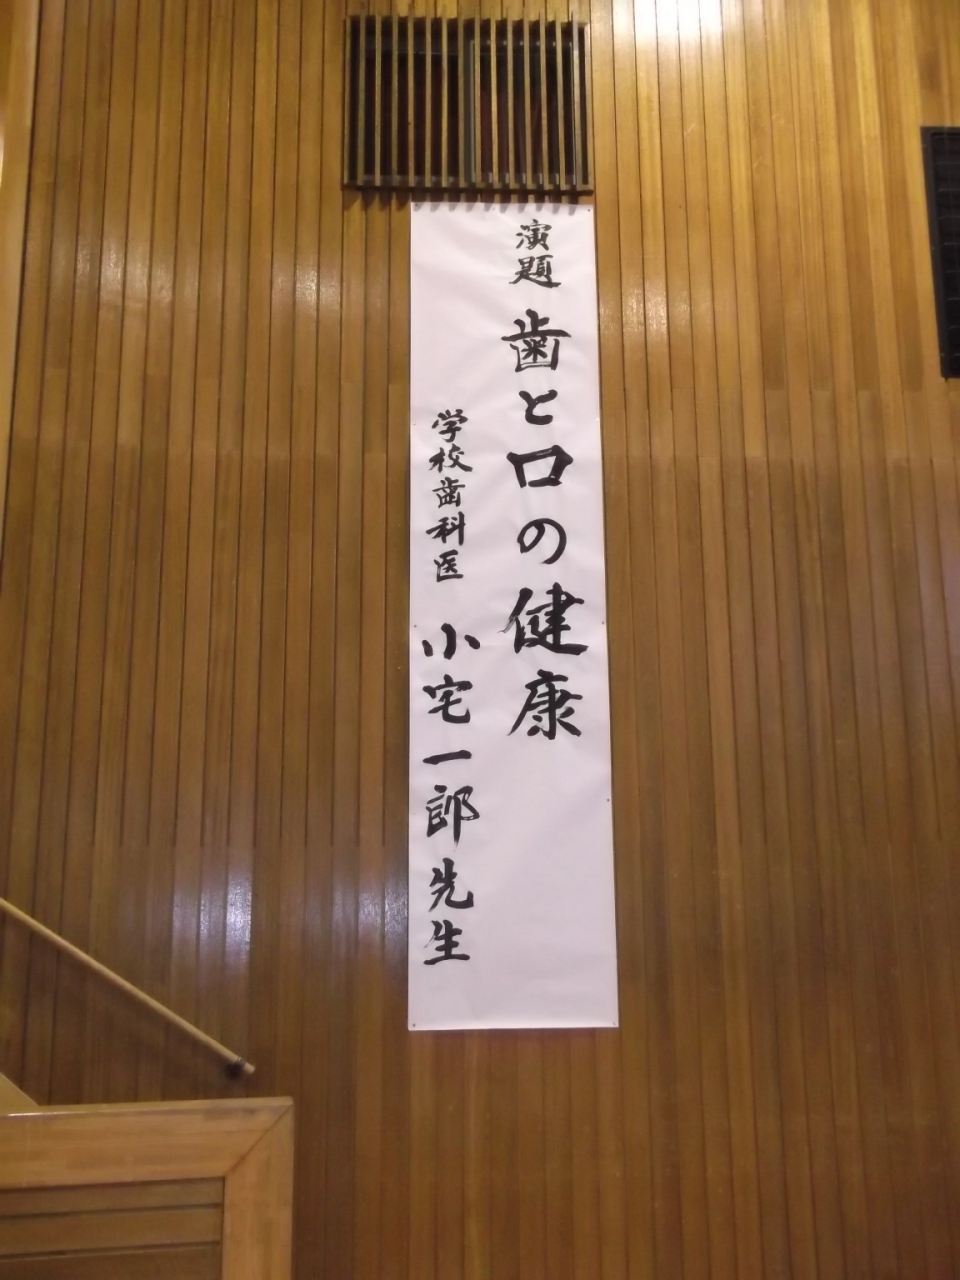 演題 歯と口の健康
学校歯科医 小宅一郎先生